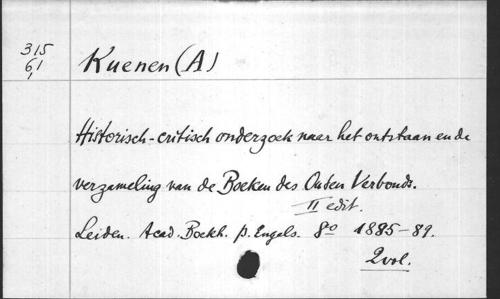 315
61,
Kuenen (A)
Historisch-critisch onderzoek naar het ontstaan en de
verzameling van de Boeken des Ouden Verbonds.
II edit.
Leiden. Acad. Boekh. p. Engels. 8o 1885-89.
2 vol.